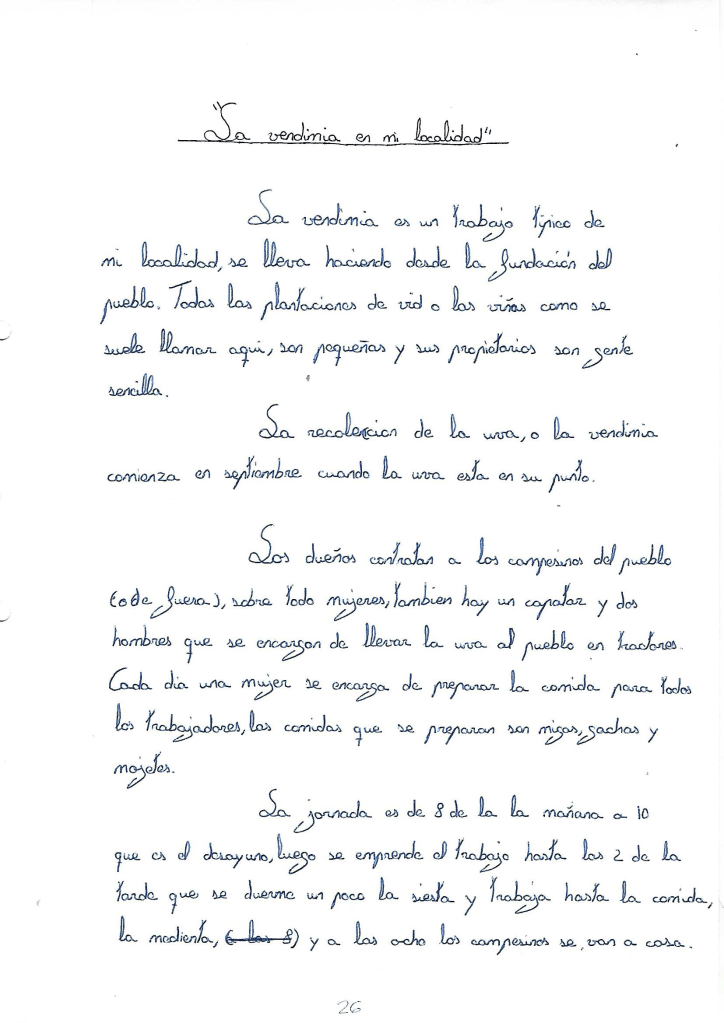 "La vendimia en mi localidad"
La vendimia es un trabajo típico de
mi localidad, se lleva haciendo desde la fundación del
pueblo. Todas las plantaciones de vid o las viñas como se
suele llamar aqui, son pequeñas y sus propietarios son gente
sencilla.
La recolercion de la uva, o la vendimia
comienza en septiembre cuando la uva esta en su punto.
Los dueños contratan a los campesinos del pueblo
(o de fuera), sobre todo mujeres, tambien hay un capataz y dos
hombres que se encargan de llevar la uva al pueblo en tractores.
Cada dia una mujer se encarga de preparar la comida para todos
los trabajadores, las comidas que se preparan son migas, gachas y
mojetes.
La jornada es de 8 de la la mañana a 10
que es el desayuno, luego se emprende el trabajo hasta las 2 de la
tarde que se duerme un poco la siesta y trabaja hasta la comida,
la medienta, (a las 8) y a las ocho los campesinos se, van a casa.
26